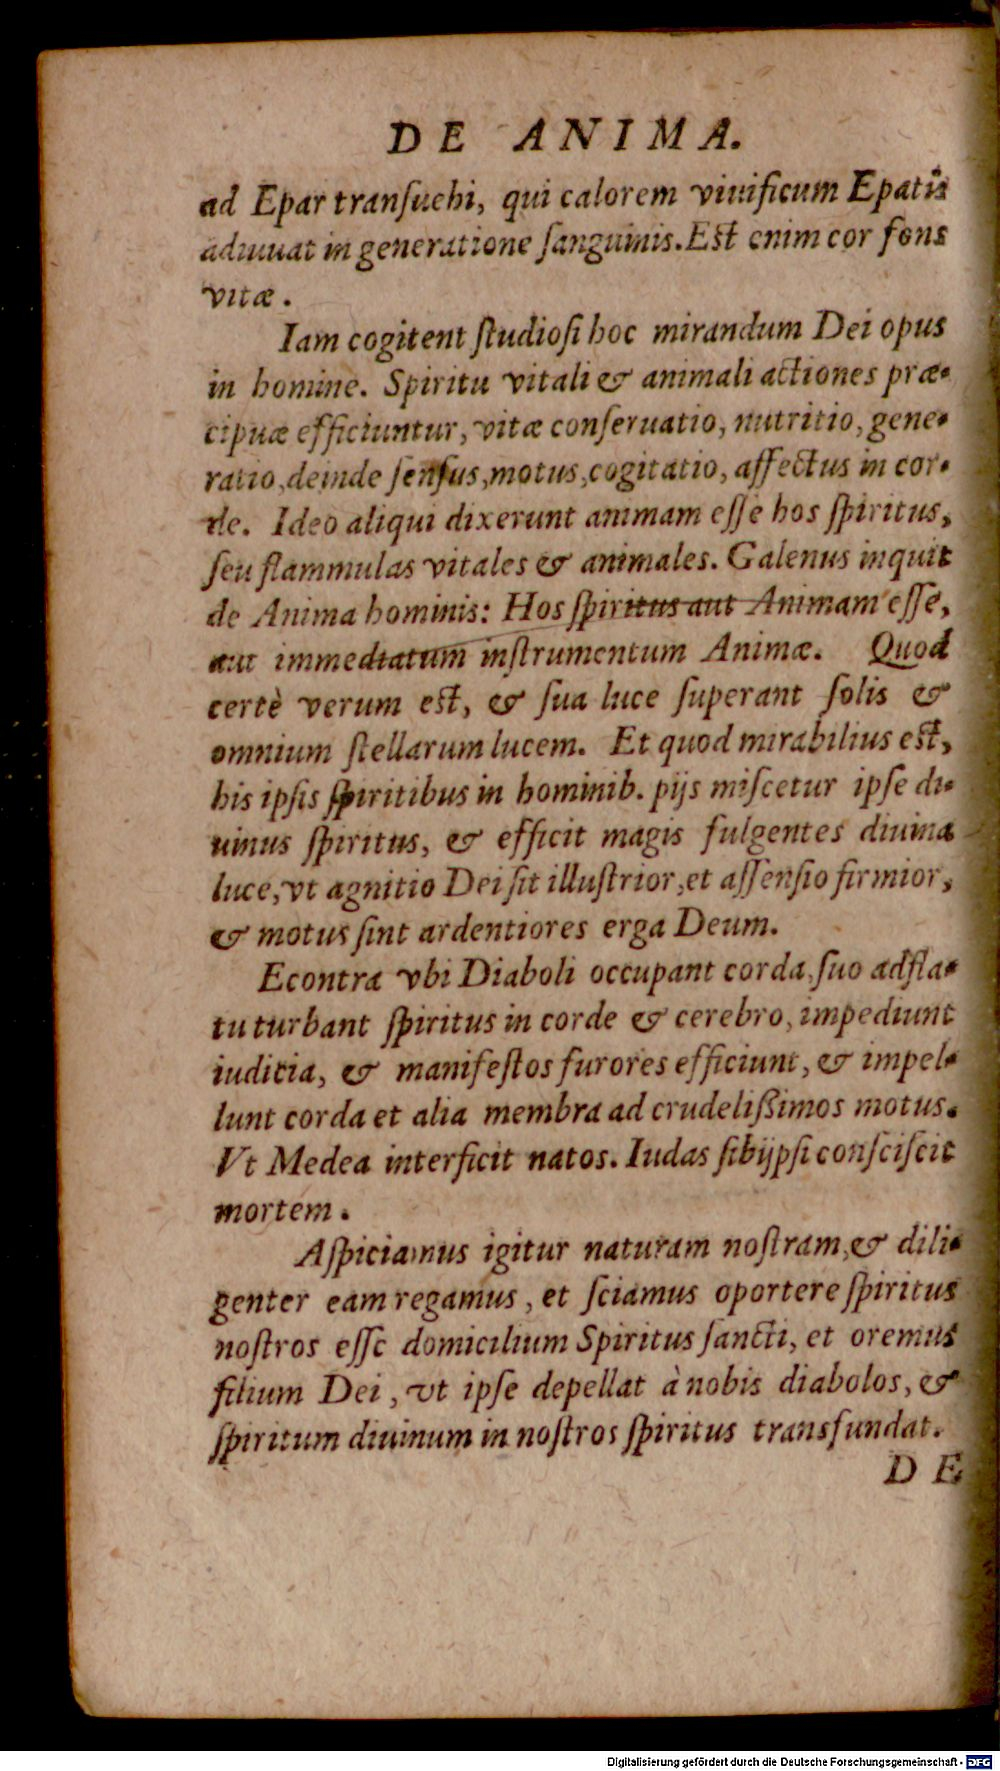 DE ANIMA.
ad Epar tranſuehi, qui calorem viuificum Epatis
adiuuat in generatione ſanguinis. Eſt enim cor fons
vitæ.
Iam cogitent ſtudioſi hoc mirandum Dei opus
in homine. Spiritu vitali & animali actiones præ-
cipuæ efficiuntur, vitæ conſeruatio, nutritio, gene-
ratio, deinde ſenſus, motus, cogitatio, affectus in cor-
de. Ideo aliqui dixerunt animam eſſe hos ſpiritus,
ſeu flammulas vitales & animales. Galenus inquit
de Anima hominis: Hos ſpiritus aut Animam eſſe,
aut immediatum inſtrumentum Animæ. Quod
certè verum eſt, & ſua luce ſuperant ſolis &
omnium ſtellarum lucem. Et quod mirabilius eſt,
his ipſis ſpiritibus in hominib. pijs miſcetur ipſe di-
uinus ſpiritus, & efficit magis fulgentes diuina
luce, vt agnitio Dei ſit illuſtrior, et aſſenſio firmior,
& motus ſint ardentiores erga Deum.
Econtra vbi Diaboli occupant corda, ſuo adfla-
tu turbant ſpiritus in corde & cerebro, impediunt
iuditia, & manifeſtos furores efficiunt, & impel-
lunt corda et alia membra ad crudelißimos motus.
Vt Medea interficit natos. Iudas ſibijpſi conſciſcit
mortem.
Aſpiciamus igitur naturam noſtram, & dili-
genter eam regamus, et ſciamus oportere ſpiritus
noſtros eſſe domicilium Spiritus ſancti, et oremus
filium Dei, vt ipſe depellat à nobis diabolos, &
ſpiritum diuinum in noſtros ſpiritus transfundat.
DE
Digitalisierung gefördert durch die Deutsche Forschungsgemeinschaft - DFG